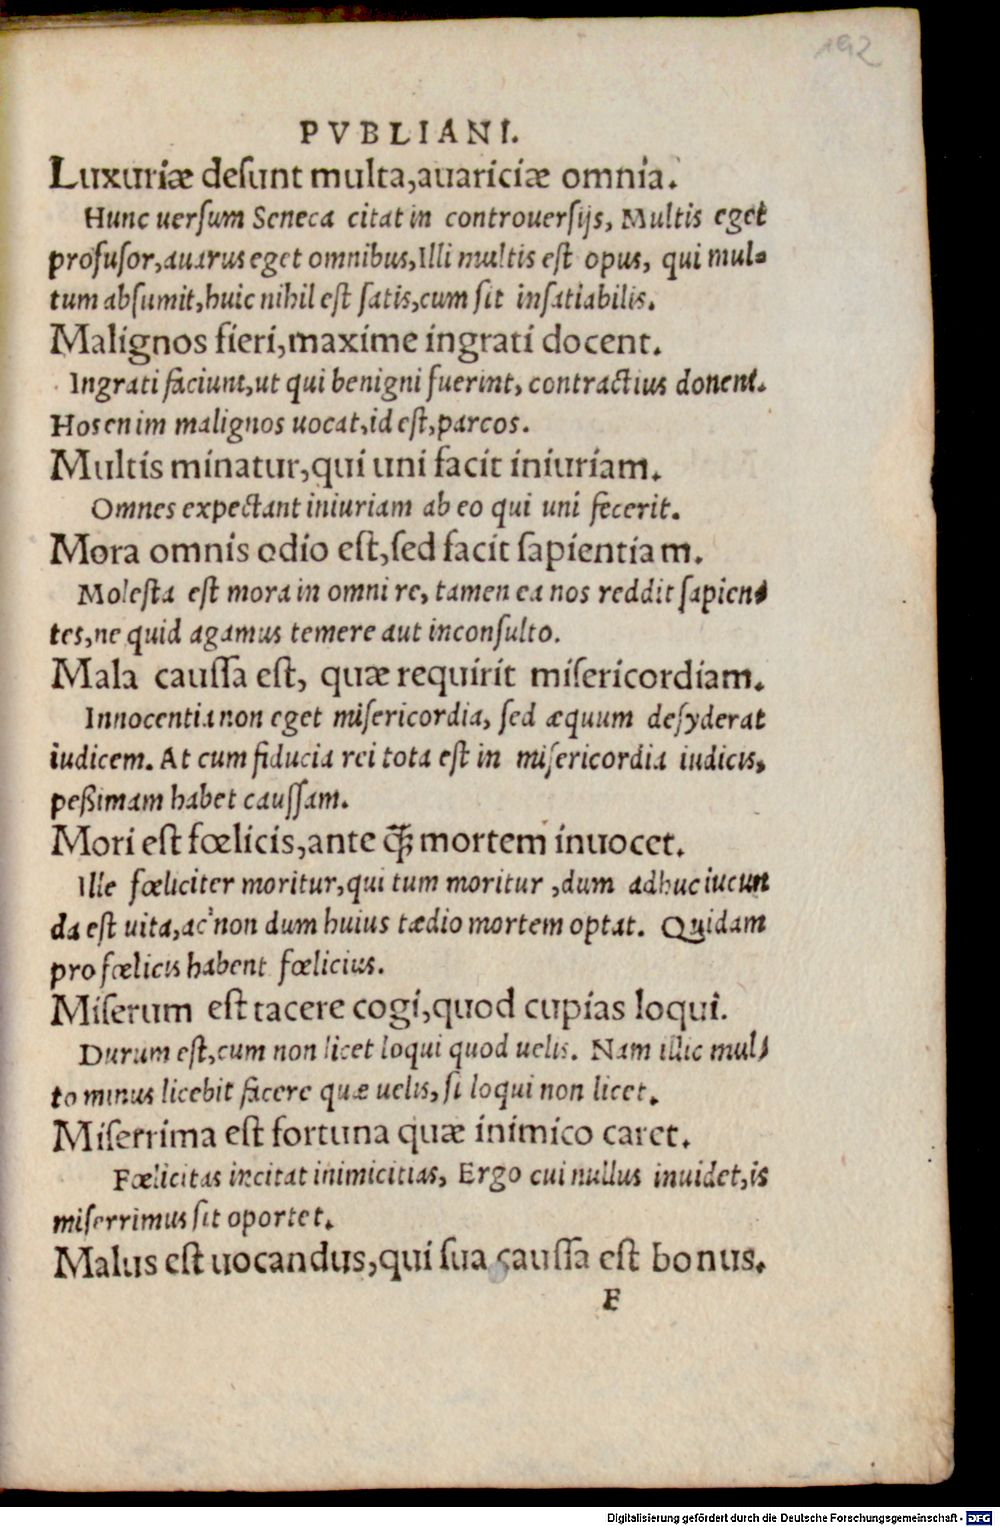 192
PVBLIANI.
Luxuriæ desunt multa,auariciæ omnia.
Hunc uersum Seneca citat in controuersijs, Multis eget
profusor,auarus eget omnibus,Illi multis est opus, qui mul-
tum absumit,huic nihil est satis,cum sit insatiabilis.
Malignos fieri,maxime ingrati docent.
Ingrati faciunt,ut qui benigni fuerint, contractius donent.
Hos enim malignos uocat,id est,parcos.
Multis minatur,qui uni facit iniuriam.
Omnes expectant iniuriam ab eo qui uni fecerit.
Mora omnis odio est,sed facit sapientiam.
Molesta est mora in omni re, tamen ea nos reddit sapien-
tes,ne quid agamus temere aut inconsulto.
Mala caussa est, quæ requirit misericordiam.
Innocentia non eget misericordia, sed æquum desyderat
iudicem. At cum fiducia rei tota est in misericordia iudicis,
peßimam habet caussam.
Mori est fœlicis,ante q̃ȝ mortem inuocet.
Ille fœliciter moritur,qui tum moritur ,dum adhuc iucun
da est uita,ac non dum huius tædio mortem optat. Quidam
pro fœlicis habent fœlicius.
Miserum est tacere cogi,quod cupias loqui.
Durum est,cum non licet loqui quod uelis. Nam illic mul-
to minus licebit facere quæ uelis, si loqui non licet.
Miserrima est fortuna quæ inimico caret.
Fœlicitas incitat inimicitias, Ergo cui nullus inuidet,is
miserrimus sit oportet.
Malus est uocandus,qui sua caussa est bonus.
F
Digitalisierung gefördert durch die Deutsche Forschungsgemeinschaft - DFG